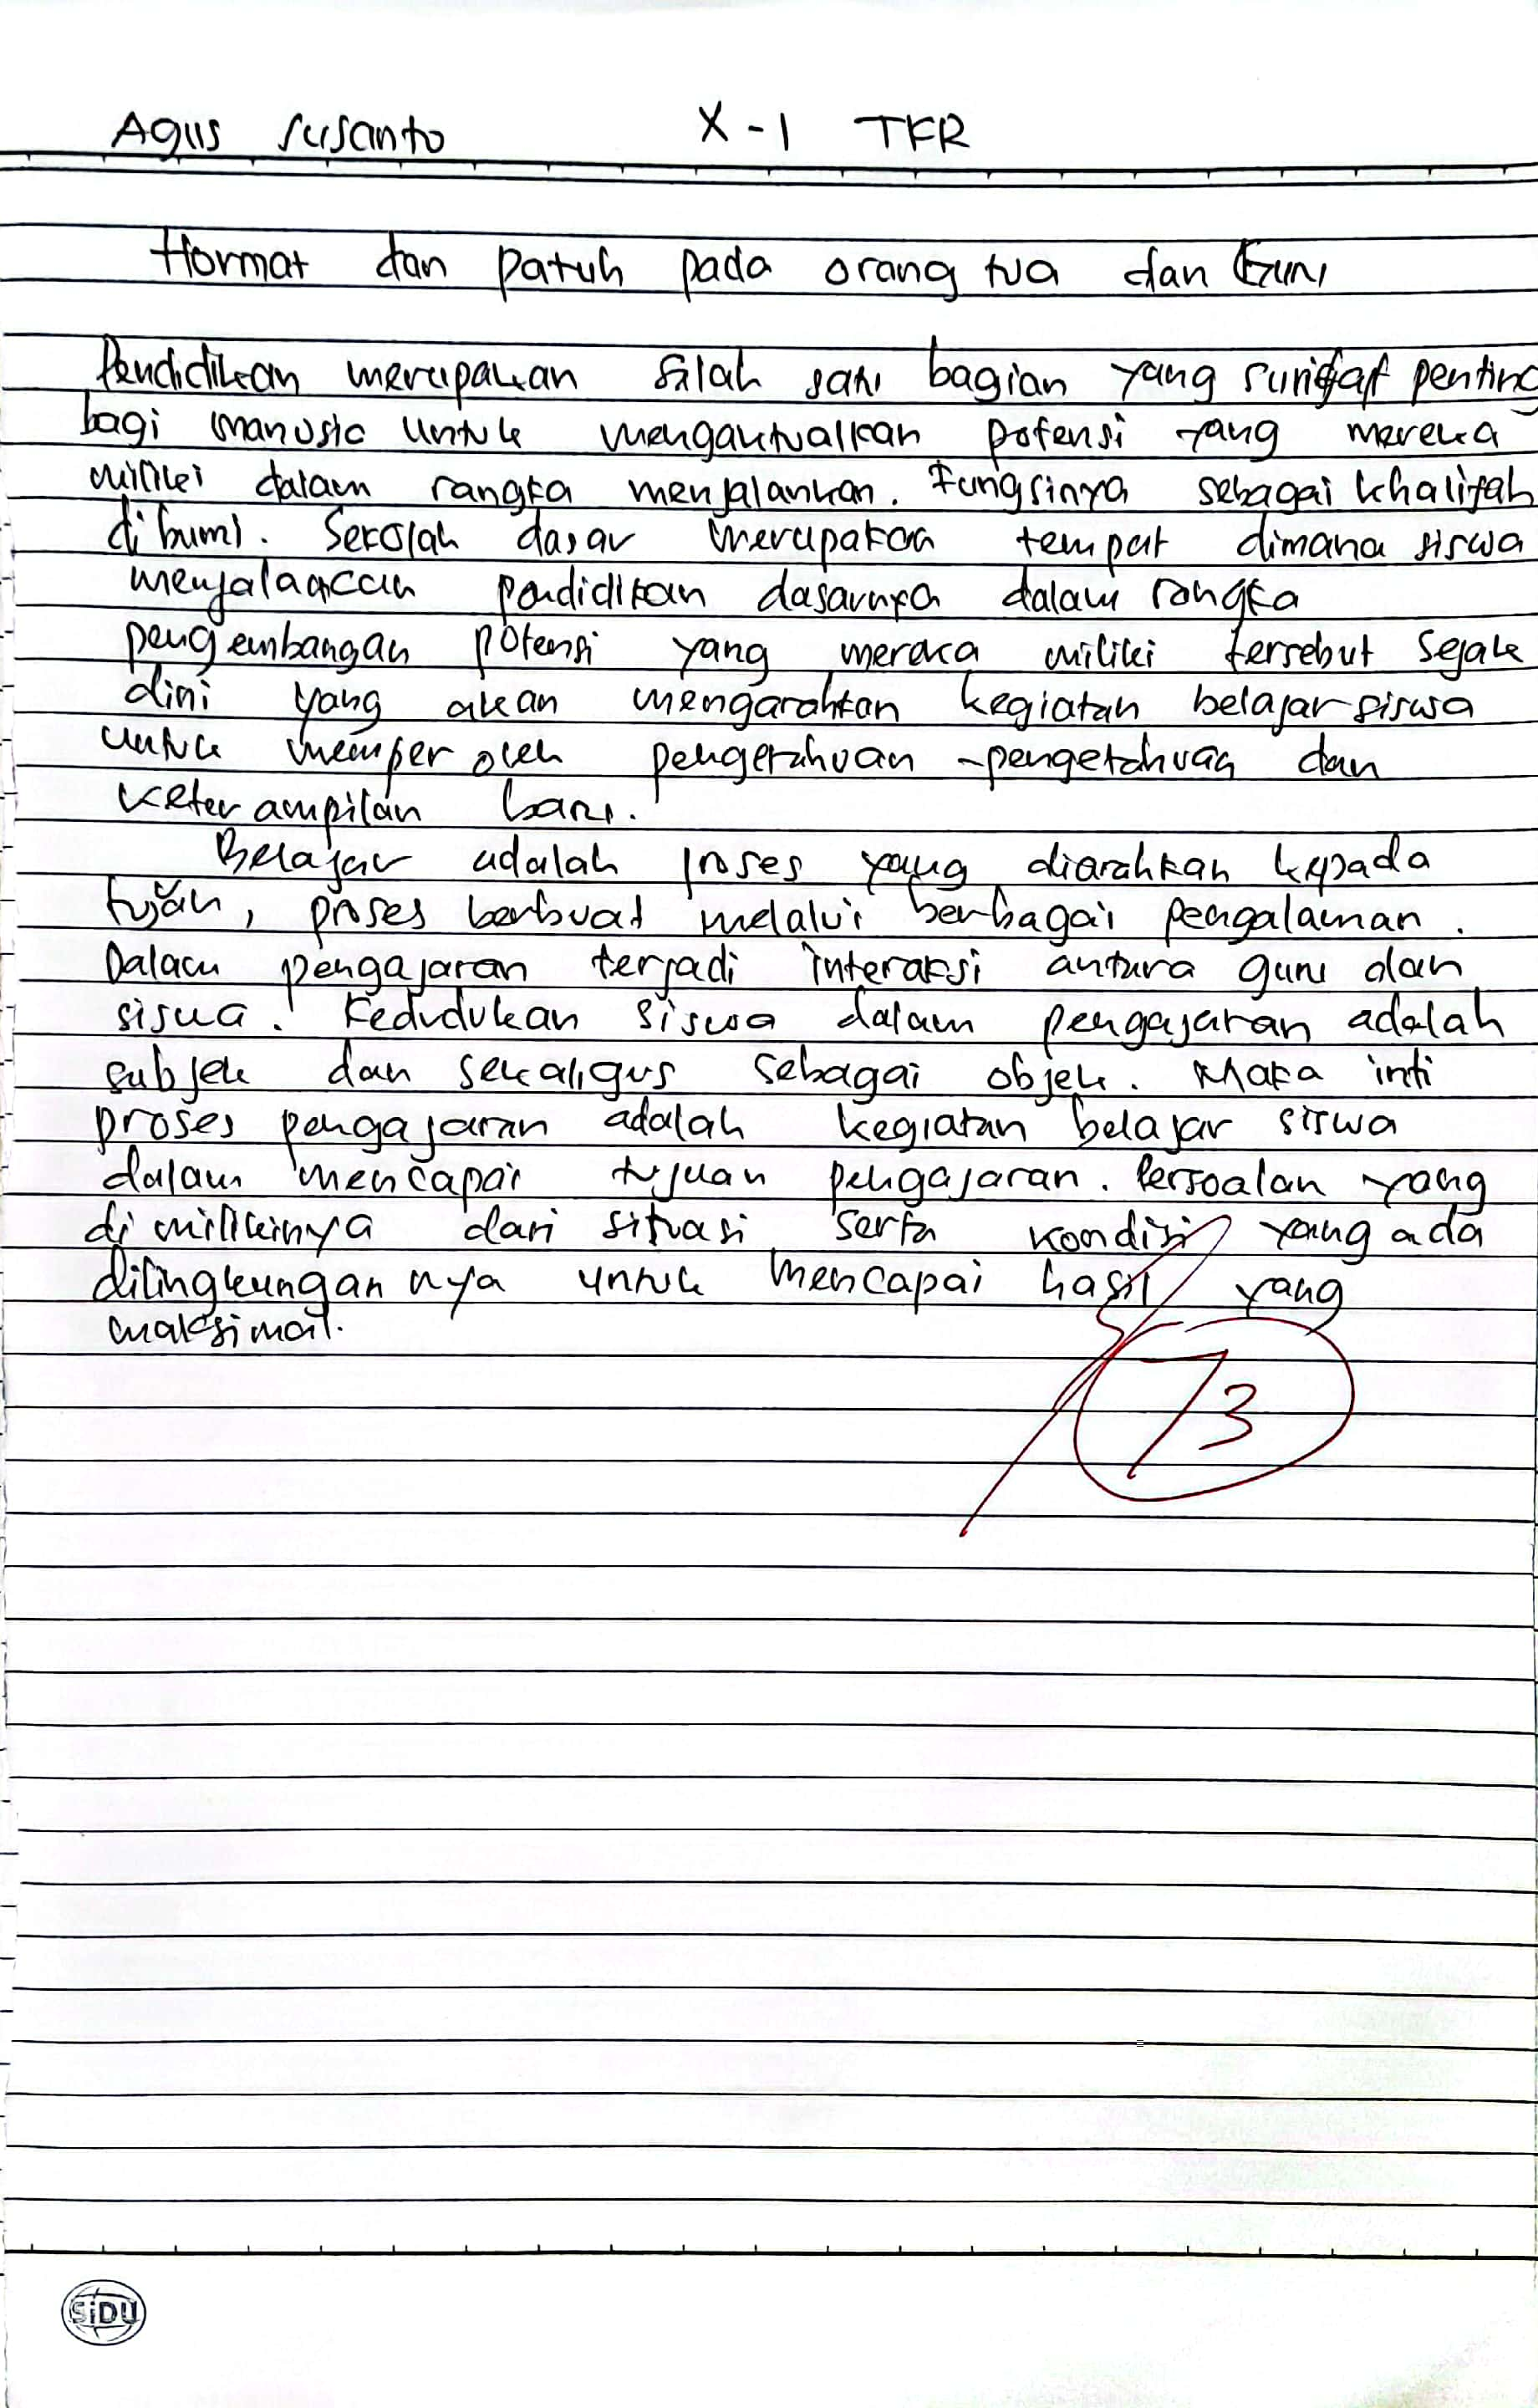 Agus Susanto X-1 TKR
Hormat dan Patuh pada orang tua dan Guru
Pendidikan merupakan salah satu bagian yang sangat penting
bagi manusia untuk mengaktualkan potensi yang mereka
miliki dalam rangka menjalankan. Fungsinya sebagai khalifah
dibumi. Sekolah dasar merupakan tempat dimana siswa
pendidikan dasarnya dalam rangka
pengembangan potensi yang mereka miliki tersebut Sejak
dini yang akan mengarahkan kegiatan belajar siswa
untuk memper oleh pengetahuan -pengetahuan dan
keter ampilan baru.
Belajar adalah proses yang diarahkan kepada
tujuan, proses berbuat melalui berbagai pengalaman.
Dalam pengajaran terjadi interaksi antara guru dan
siswa. Kedudukan siswa dalam pengajaran adalah
subjek dan sekaligus sebagai objek. Maka inti
proses pengajaran adalah kegiatan belajar siswa
dalam mencapai tujuan pengajaran. Persoalan yang
di milikinya dari situasi serta kondisi yang ada
dilingkungan nya untuk mencapai hasil yang
maksimal.
73
SiDU